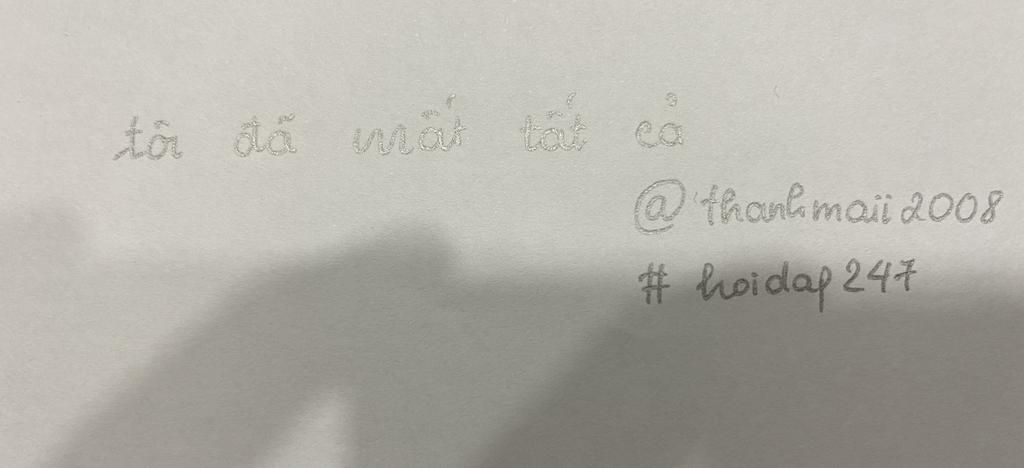 tôi đã mất tất cả
@thanhmaii2008
# hoidap247